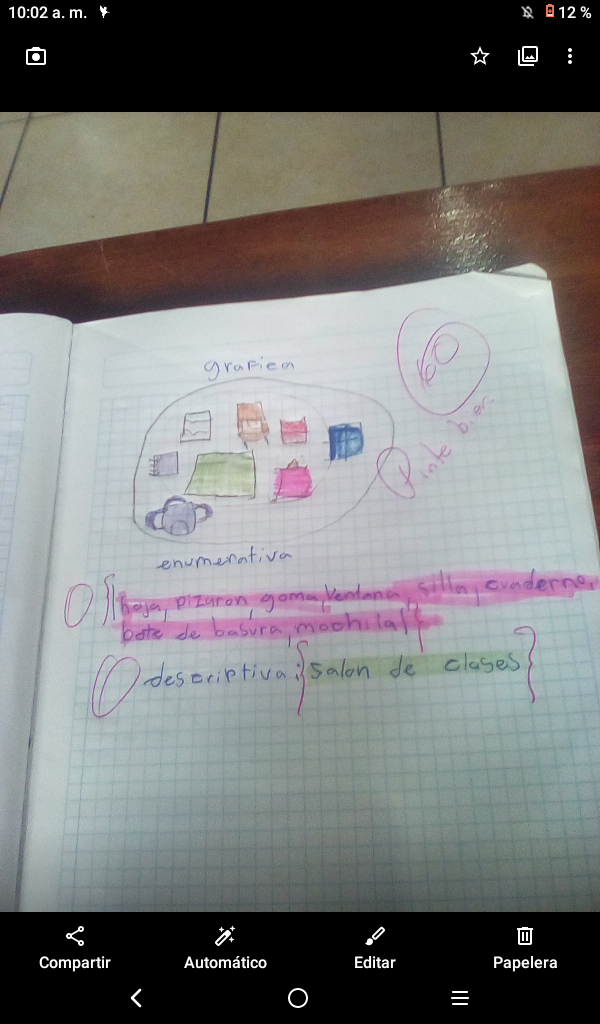 10:02 a. m.
12 %
grafica
enumerativa
hoja, pizaron, goma, ventana, silla, cuaderno,
bote de basura, mochila
descriptiva: {salon de clases}
Compartir
Automático
Editar
Papelera